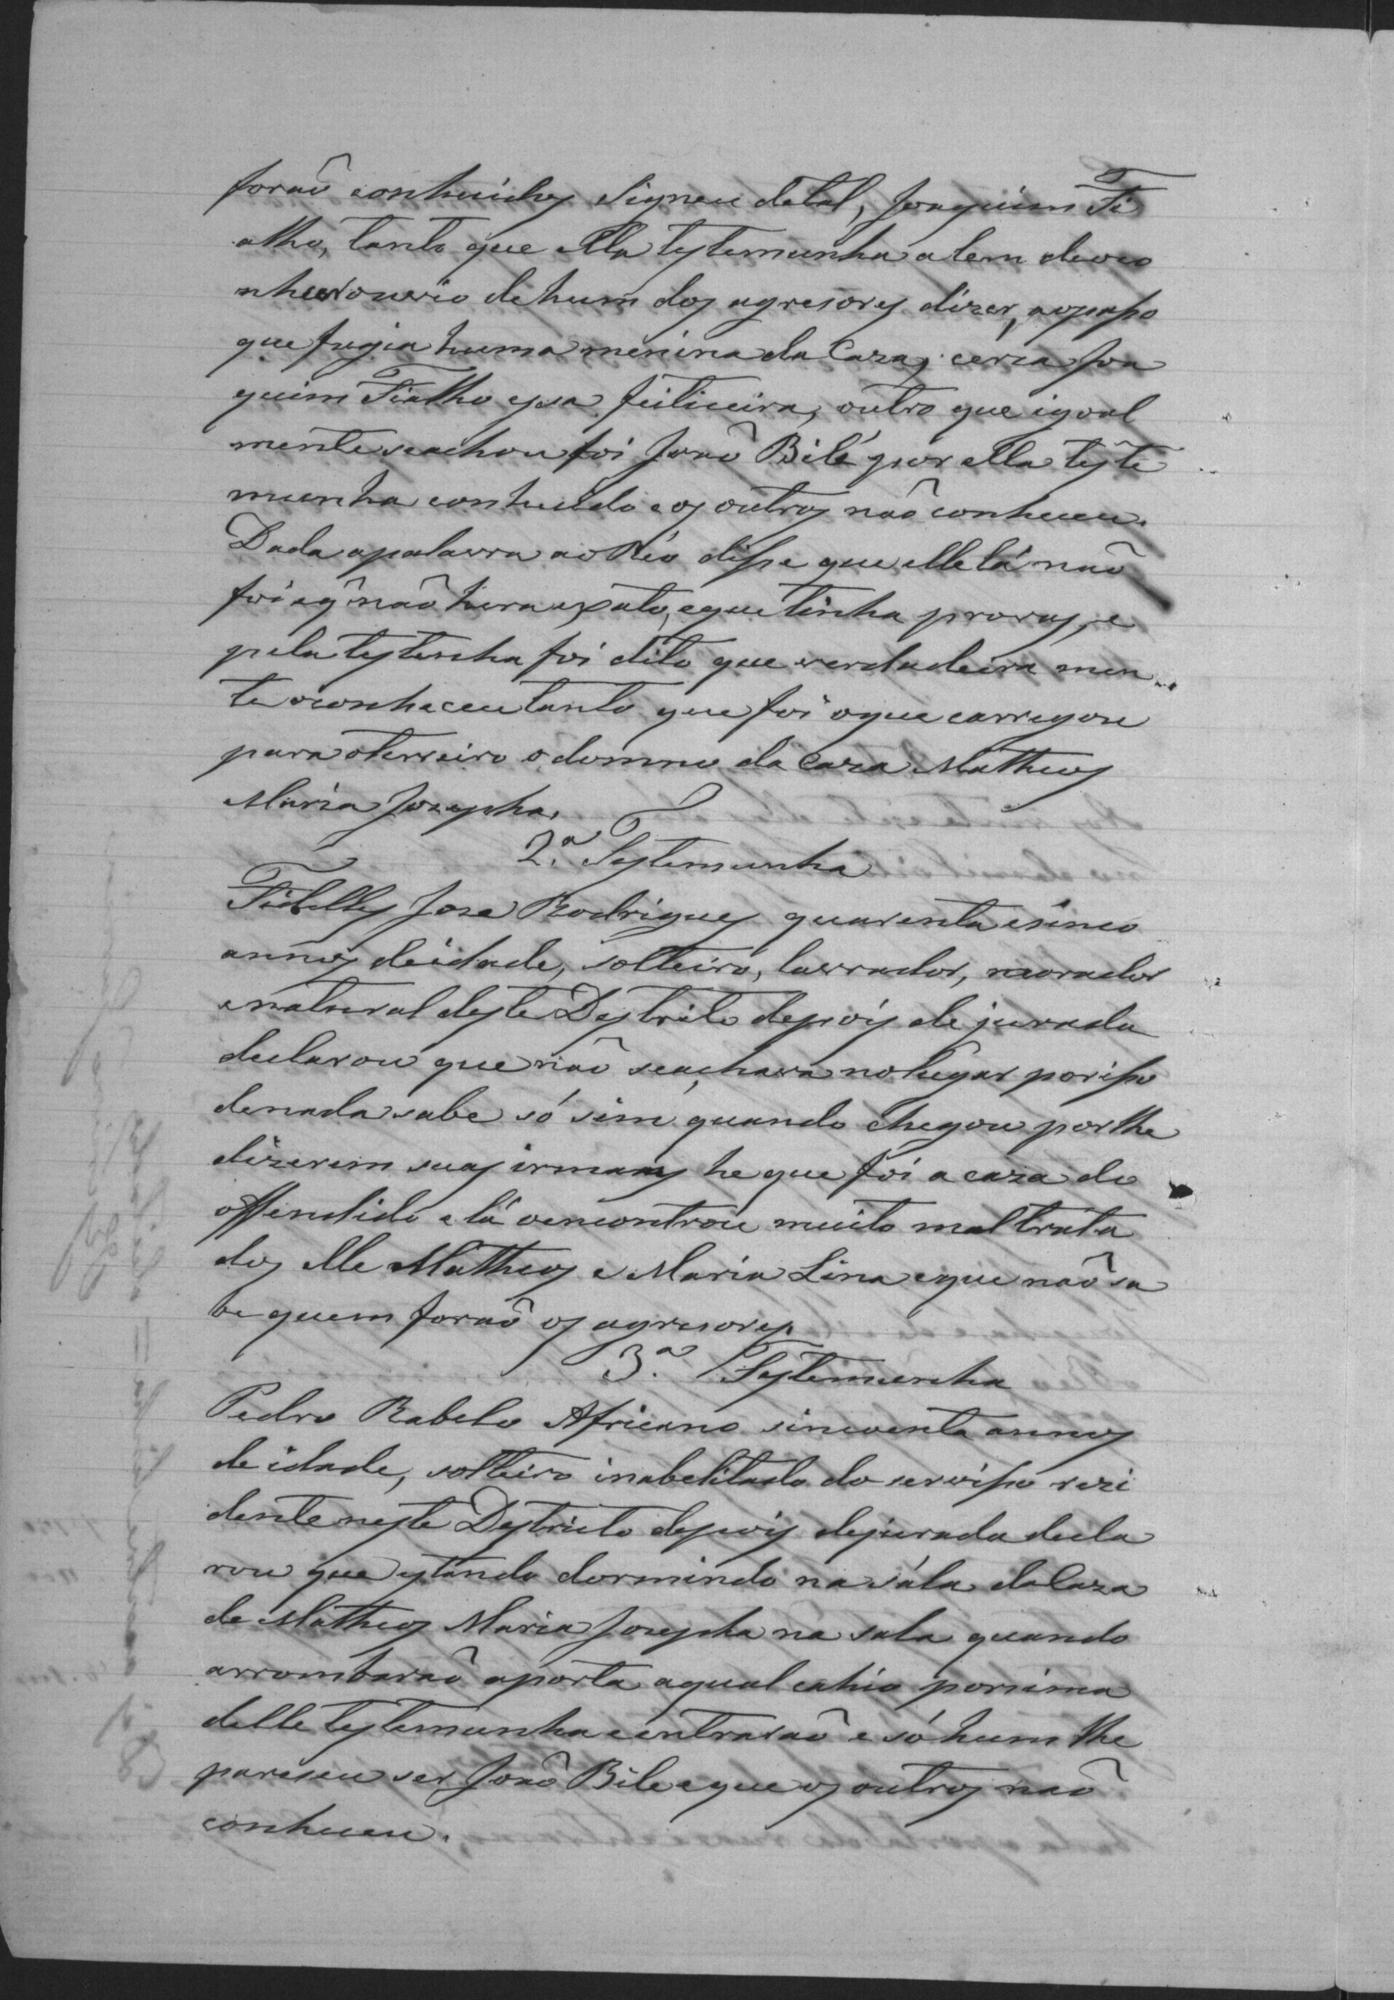 foraõ conhecidos Signeu detal, Joaquim Fi
alho, tanto que ella testemunha alem deoco
nhecer ouvio dehum dos agresores dizer, aopasso
que fugia huma menina da Caza, cerca Joa
quim Fialho essa feiticeira, outro que igoal
mente seachou foi Joaõ Bilé por ella teste
munha conhecido e os outros naõ conheceu.
Dada apalavra ao Réo disse que elle lá naõ
foi e q̃ naõ hera exato, eque tinha provas, e
pela testenha foi dito que verdadeira men
te oconheceu tanto que foi oque carregou
para oterreiro o domno da Caza Matheos
Maria Josepha.
2.ª Testemunha
Fidellis Jose Rodrigues quarenta esinco
annos deidade, solteiro, lavrador, morador
enatural deste Destrito depois de jurada
declarou que naõ seachava nolugar porisso
denada sabe só sim quando chegou porlhe
dizerem suas irmans he que foi a caza do
offendido e lá oencontrou muito maltrata
dos elle Matheos e Maria Lina eque naõ sa
be quem foraõ os agresores.
3.ª Testemunha
Pedro Rabelo Africano sincoenta annos
de idade, solteiro inabelitado do servisso rezi
dente neste Destricto depois dejurada decla
rou que estando dormindo na sála daCaza
de Matheos Maria Josepha na sala quando
arrombaraõ aporta aqual cahio porsima
delle testemunha eentraraõ e só hum lhe
pareseu ser Joaõ Bile eque os outros naõ
conheceu.